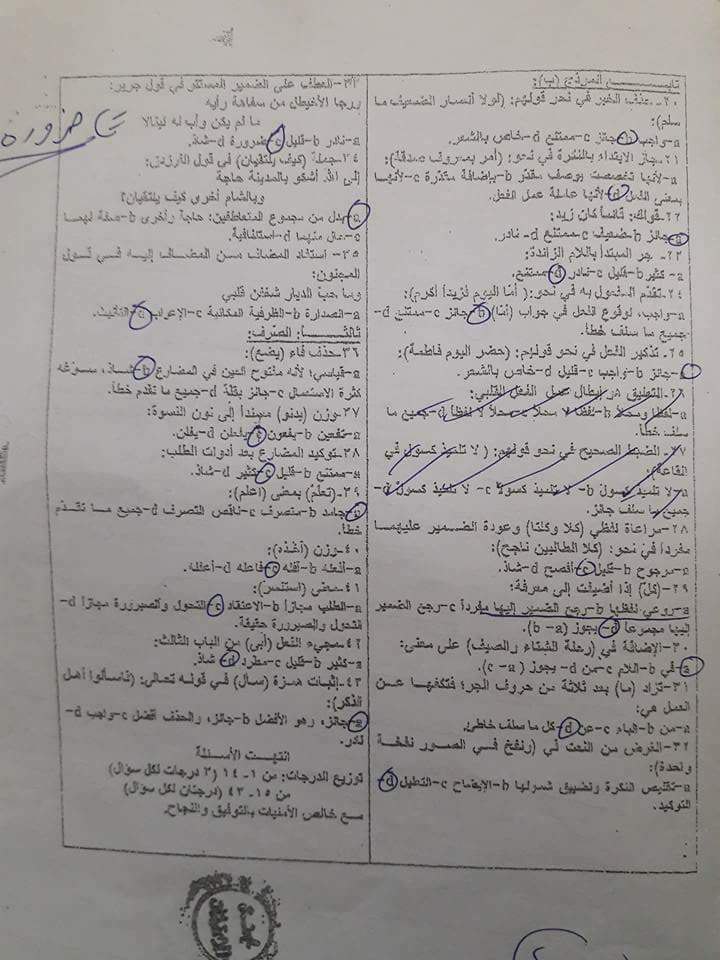 تابـــــع النموذج (ب):
٢٠-حذف الخبر في نحو قولهم: (لولا أنصار الضعيف ما
سلم):
a-واجب b-جائز c-ممتنع d-خاص بالشعر.
٢١-جاز الابتداء بالنكرة في نحو: (أمر بمعروف صدقة):
a-لأنها تخصصت بوصف مقدّر b-بإضافة مقدّرة c-لأنها
بمعنى الفعل d-لأنها عاملة عمل الفعل.
٢٢-قولك: قائماً كان زيد:
a-جائز b-ضعيف c-ممتنع d- نادر.
٢٣- جر المبتدأ باللام الزائدة:
a- كثير b-قليل c-نادر d-ممتنع.
٢٤-تقدّم المفعول به في نحو: (أمّا اليوم فزيداً أكرم):
a-واجب، لوقوع الفعل في جواب (أمّا) b-جائز c-ممتنع d-
جميع ما سلف خطأ.
٢٥- تذكير الفعل في نحو قولهم: (حضر اليوم فاطمة):
a-جائز b-واجب c-قليل d-خاص بالشعر.
٢٦-التعليق هو إبطال عمل الفعل القلبي:
a-لفظاً ومحلاً b-لفظاً لا محلاً c-محلاً لا لفظاً d-جميع ما
سلف خطأ.
٢٧-الضبط الصحيح في نحو قولهم: ( لا تلميذ كسول في
القاعة):
a-لا تلميذَ كسولَ b- لا تلميذَ كسولاً c- لا تلميذَ كسولٌ d-
جميع ما سلف جائز.
٢٨-مراعاة لفظي (كلا وكلتا) وعودة الضمير عليهما
مفرداً في نحو: (كلا الطالبين ناجح):
a-مرجوح b-قليل c-أفصح d-شاذ.
٢٩-(كلّ) إذا أضيفت إلى معرفة:
a-روعي لفظها b-رجع الضمير إليها مفرداً c-رجع الضمير
إليها مجموعاً d-يجوز (a - b).
٣٠-الإضافة في (رحلة الشتاء والصيف) على معنى:
a-في b-اللام c-من d-يجوز ( a - c).
٣١-تزاد (ما) بعد ثلاثة من حروف الجر؛ فتكفها عن
العمل هي:
a-من b-الباء c-عن d-كل ما سلف خاطئ.
٣٢-الغرض من النعت في (ونفخ في الصور نفخة
واحدة):
a-تقليص النكرة وتضييق شمولها b-الإيضاح c-التعليل d-
التوكيد.
٣٣-العطف على الضمير المستتر في قول جرير:
ورجا الأخيطل من سفاهة رأيه
ما لم يكن وأب له لينالا
a-نادر b-قليل c-ضرورة d-شاذ.
ضرورة
٣٤-جملة (كيف يلتقيان) في قول الفرزدق:
إلى الله أشكو بالمدينة حاجة
وبالشام أخرى كيف يلتقيان؟
a-بدل من مجموع المتعاطفين: حاجة وأخرى b-صفة لهما
c-حال منهما d-استئنافية.
٣٥- استفاد المضاف من المضاف إليه في قول
المجنون:
وما حب الديار شغفن قلبي
a-الصدارة b-الظرفية المكانية c-الإعراب d-التأنيث.
ثالثـــــاً: الصّرف:
٣٦-حذف فاء (يضع):
a-قياسي؛ لأنه مفتوح العين في المضارع b-شاذ، سوّغه
كثرة الاستعمال c-جائز بقلة d-جميع ما تقدم خطأ.
٣٧-وزن (يدنو) مسنداً إلى نون النسوة:
a-تفعين b-يفعون c-يفعلن d-يفلن.
٣٨-توكيد المضارع بعد أدوات الطلب:
a- ممتنع b-قليل c-كثير d-شاذ.
٣٩-(تعلّمْ) بمعنى (اعلم):
a-جامد b-متصرف c-ناقص التصرف d-جميع ما تقدّم
خطأ.
٤٠-وزن (أشدّه):
a-أفعلة b-أفلة c-فاعله d-أعفله.
٤١-معنى (استنسر):
a-الطلب مجازاً b-الاعتقاد c-التحول والصيرورة مجازاً d-
التحول والصيرورة حقيقة.
٤٢-مجيء الفعل (أبى) من الباب الثالث:
a-كثير b-قليل c-مطرد d-شاذ.
٤٣-إثبات همزة (سأل) في قوله تعالى: (فاسألوا أهل
الذكر):
a-جائز، وهو الأفضل b-جائز، والحذف أفضل c-واجب d-
نادر.
انتهت الأسئلة
توزيع الدرجات: من ١- ١٤ (٣ درجات لكل سؤال)
من ١٥- ٤٣ (درجتان لكل سؤال)
مع خالص الأمنيات بالتوفيق والنجاح.